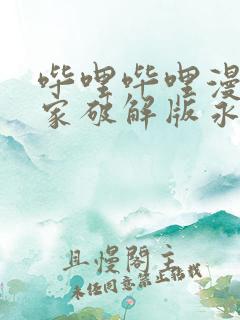 哔哩哔哩漫
家破解版永
且慢阁主
未经同意禁止搭载